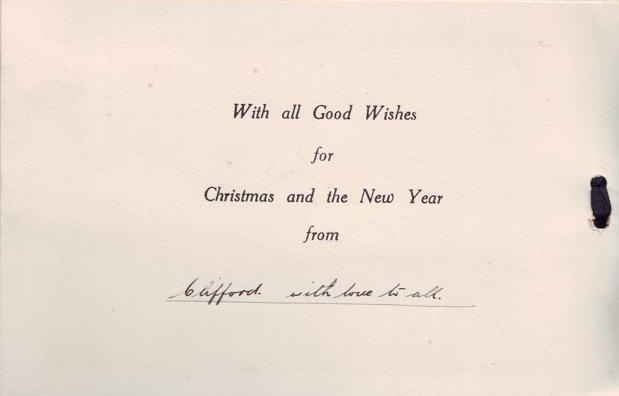 With all Good Wishes
for
Christmas and the New Year
from
Clifford. with love to all.